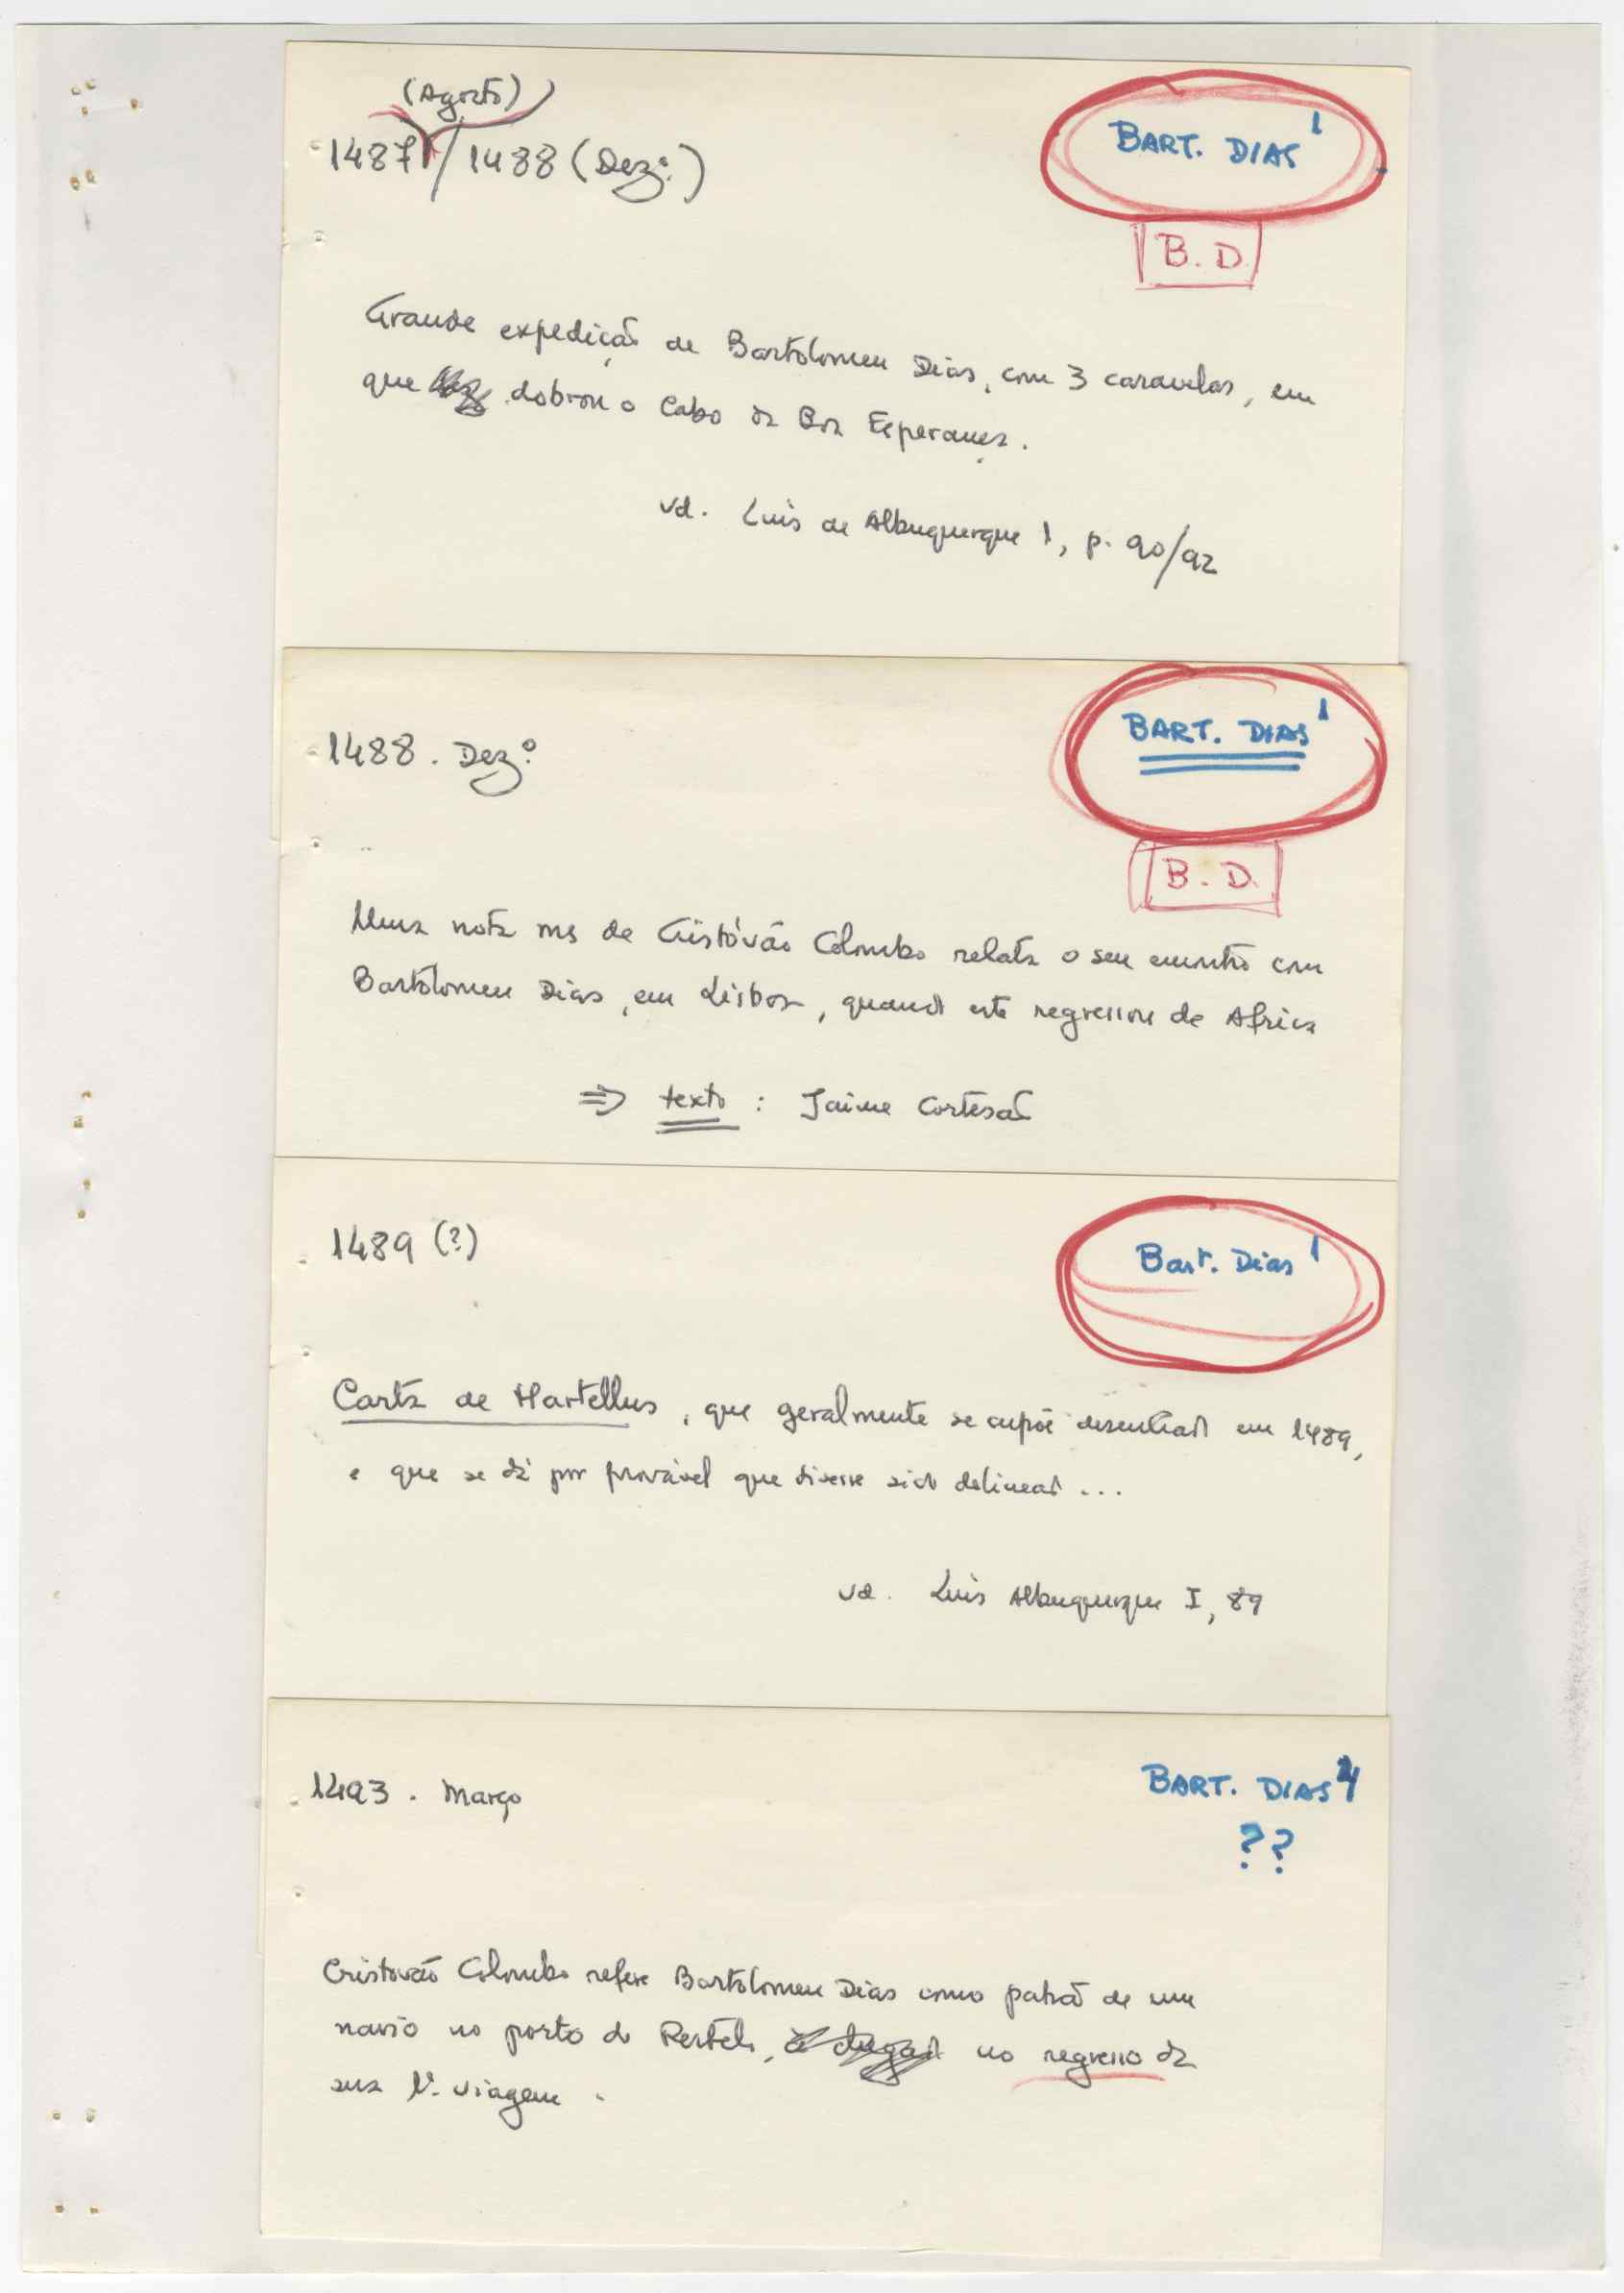 (Agosto)
1487/1488 (Dez.º)
BART. DIAS 1
B. D.
Grande expedição de Bartolomeu Dias, com 3 caravelas, em
que dobrou o Cabo da Boa Esperança.
vd. Luís de Albuquerque 1, p. 90/92
1488. Dez.º
BART. DIAS 1
B. D.
Numa nota ms de Cristóvão Colombo relata o seu encontro com
Bartolomeu Dias, em Lisboa, quando este regressou de Africa
⇒ texto : Jaime Cortesão
1489 (?)
Bart. Dias 1
Carta de Martellus, que geralmente se supõe desenhada em 1489,
e que se dá por provável que tivesse sido delineada ...
vd. Luís Albuquerque I, 89
1493. Março
BART. DIAS
??
Cristovão Colombo refere Bartolomeu Dias como patrão de um
navio no porto do Restelo, no regresso da
sua 1ª. viagem.